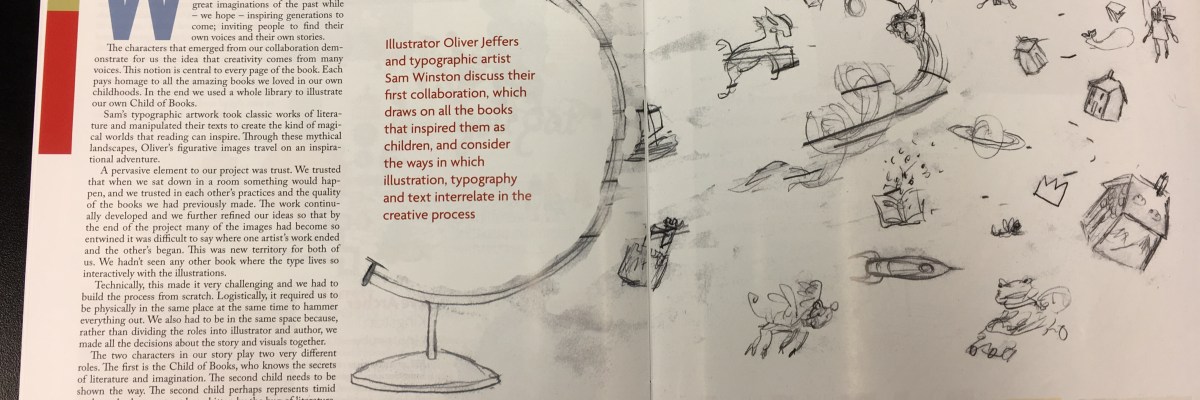 W
great imaginations of the past while
– we hope – inspiring generations to
come; inviting people to find their
own voices and their own stories.
The characters that emerged from our collaboration dem-
onstrate for us the idea that creativity comes from many
voices. This notion is central to every page of the book. Each
pays homage to all the amazing books we loved in our own
childhoods. In the end we used a whole library to illustrate
our own Child of Books.
Sam's typographic artwork took classic works of litera-
ture and manipulated their texts to create the kind of magi-
cal worlds that reading can inspire. Through these mythical
landscapes, Oliver's figurative images travel on an inspira-
tional adventure.
A pervasive element to our project was trust. We trusted
that when we sat down in a room something would hap-
pen, and we trusted in each other's practices and the quality
of the books we had previously made. The work continu-
ally developed and we further refined our ideas so that by
the end of the project many of the images had become so
entwined it was difficult to say where one artist's work ended
and the other's began. This was new territory for both of
us. We hadn't seen any other book where the type lives so
interactively with the illustrations.
Technically, this made it very challenging and we had to
build the process from scratch. Logistically, it required us to
be physically in the same place at the same time to hammer
everything out. We also had to be in the same space because,
rather than dividing the roles into illustrator and author, we
made all the decisions about the story and visuals together.
The two characters in our story play two very different
roles. The first is the Child of Books, who knows the secrets
of literature and imagination. The second child needs to be
shown the way. The second child perhaps represents timid
Illustrator Oliver Jeffers
and typographic artist
Sam Winston discuss their
first collaboration, which
draws on all the books
that inspired them as
children, and consider
the ways in which
illustration, typography
and text interrelate in the
creative process